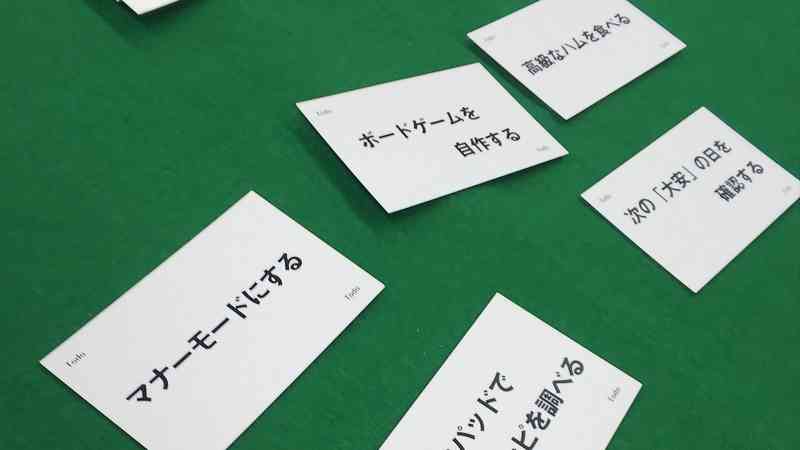 Todo
高級なハムを食べる
Todo
Todo
ボードゲームを
自作する
Todo
Todo
次の「大安」の日を
確認する
Todo
Todo
マナーモードにする
Todo
パッドで
ピを調べる
Todo